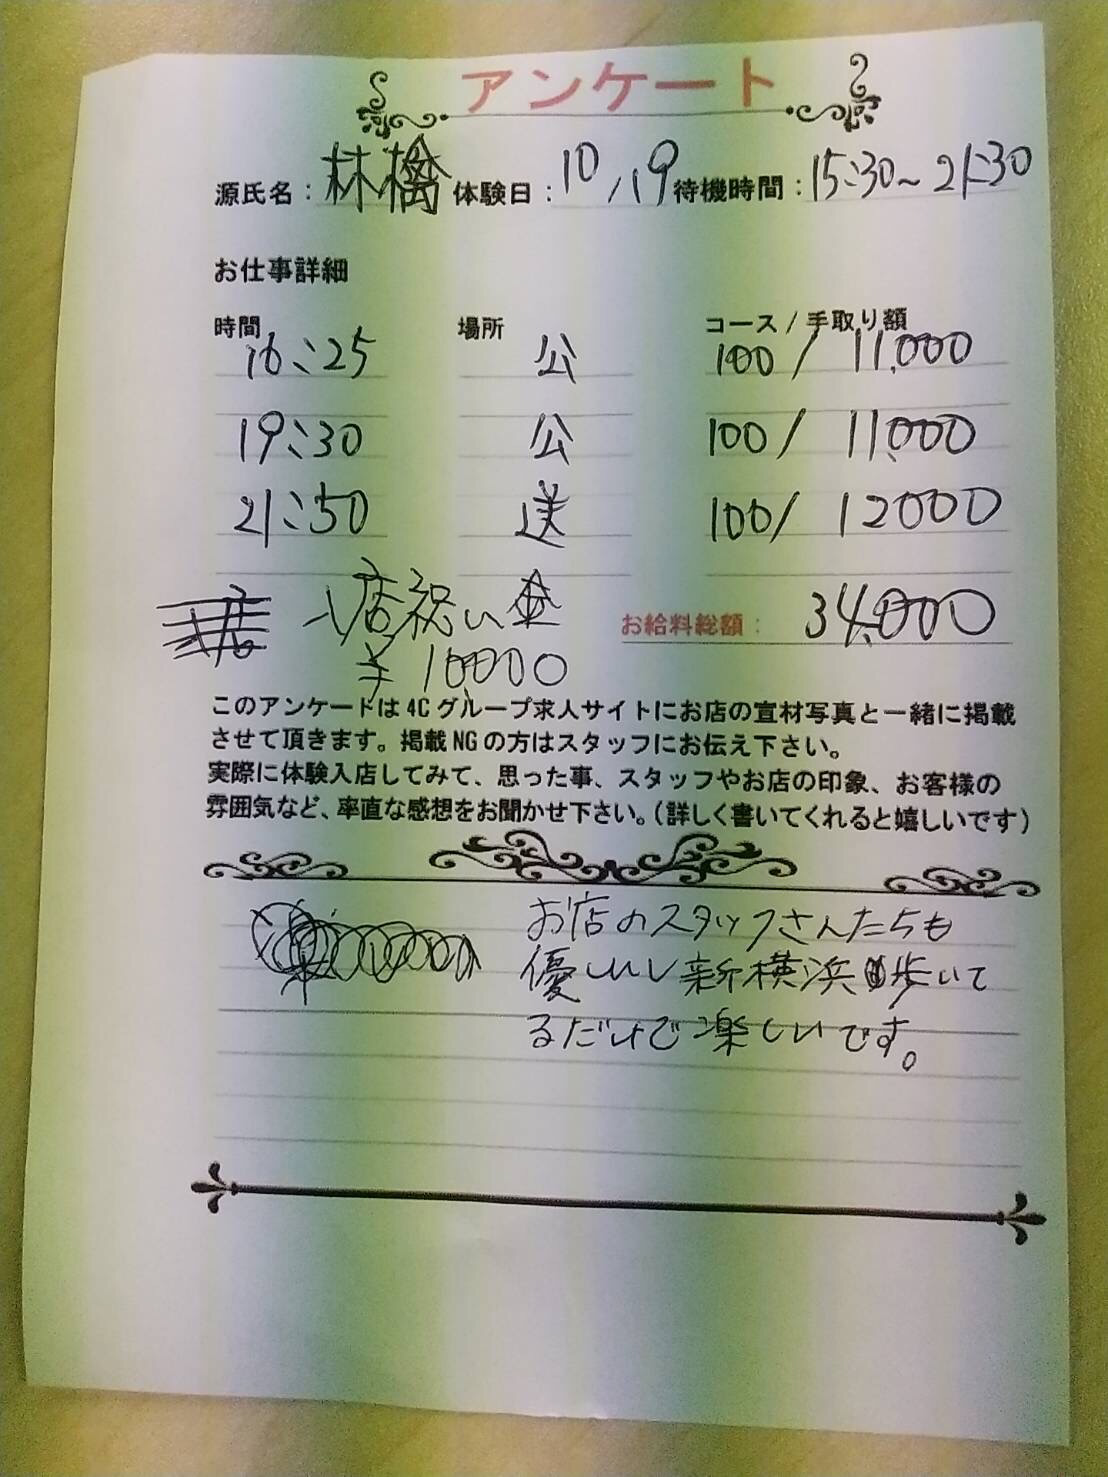 アンケート
源氏名：林檎 体験日：10/19 待機時間：15:30～21:30
お仕事詳細
時間 場所 コース/手取り額
16:25 公 100/ 11,000
19:30 公 100/ 11,000
21:50 送 100/ 12000
入店祝い金 お給料総額： 34,000
¥10,000
このアンケートは4Cグループ求人サイトにお店の宣材写真と一緒に掲載
させて頂きます。掲載NGの方はスタッフにお伝え下さい。
実際に体験入店してみて、思った事、スタッフやお店の印象、お客様の
雰囲気など、率直な感想をお聞かせ下さい。（詳しく書いてくれると嬉しいです）
お店のスタッフさんたちも
優しいし新横浜歩いて
るだけで楽しいです。